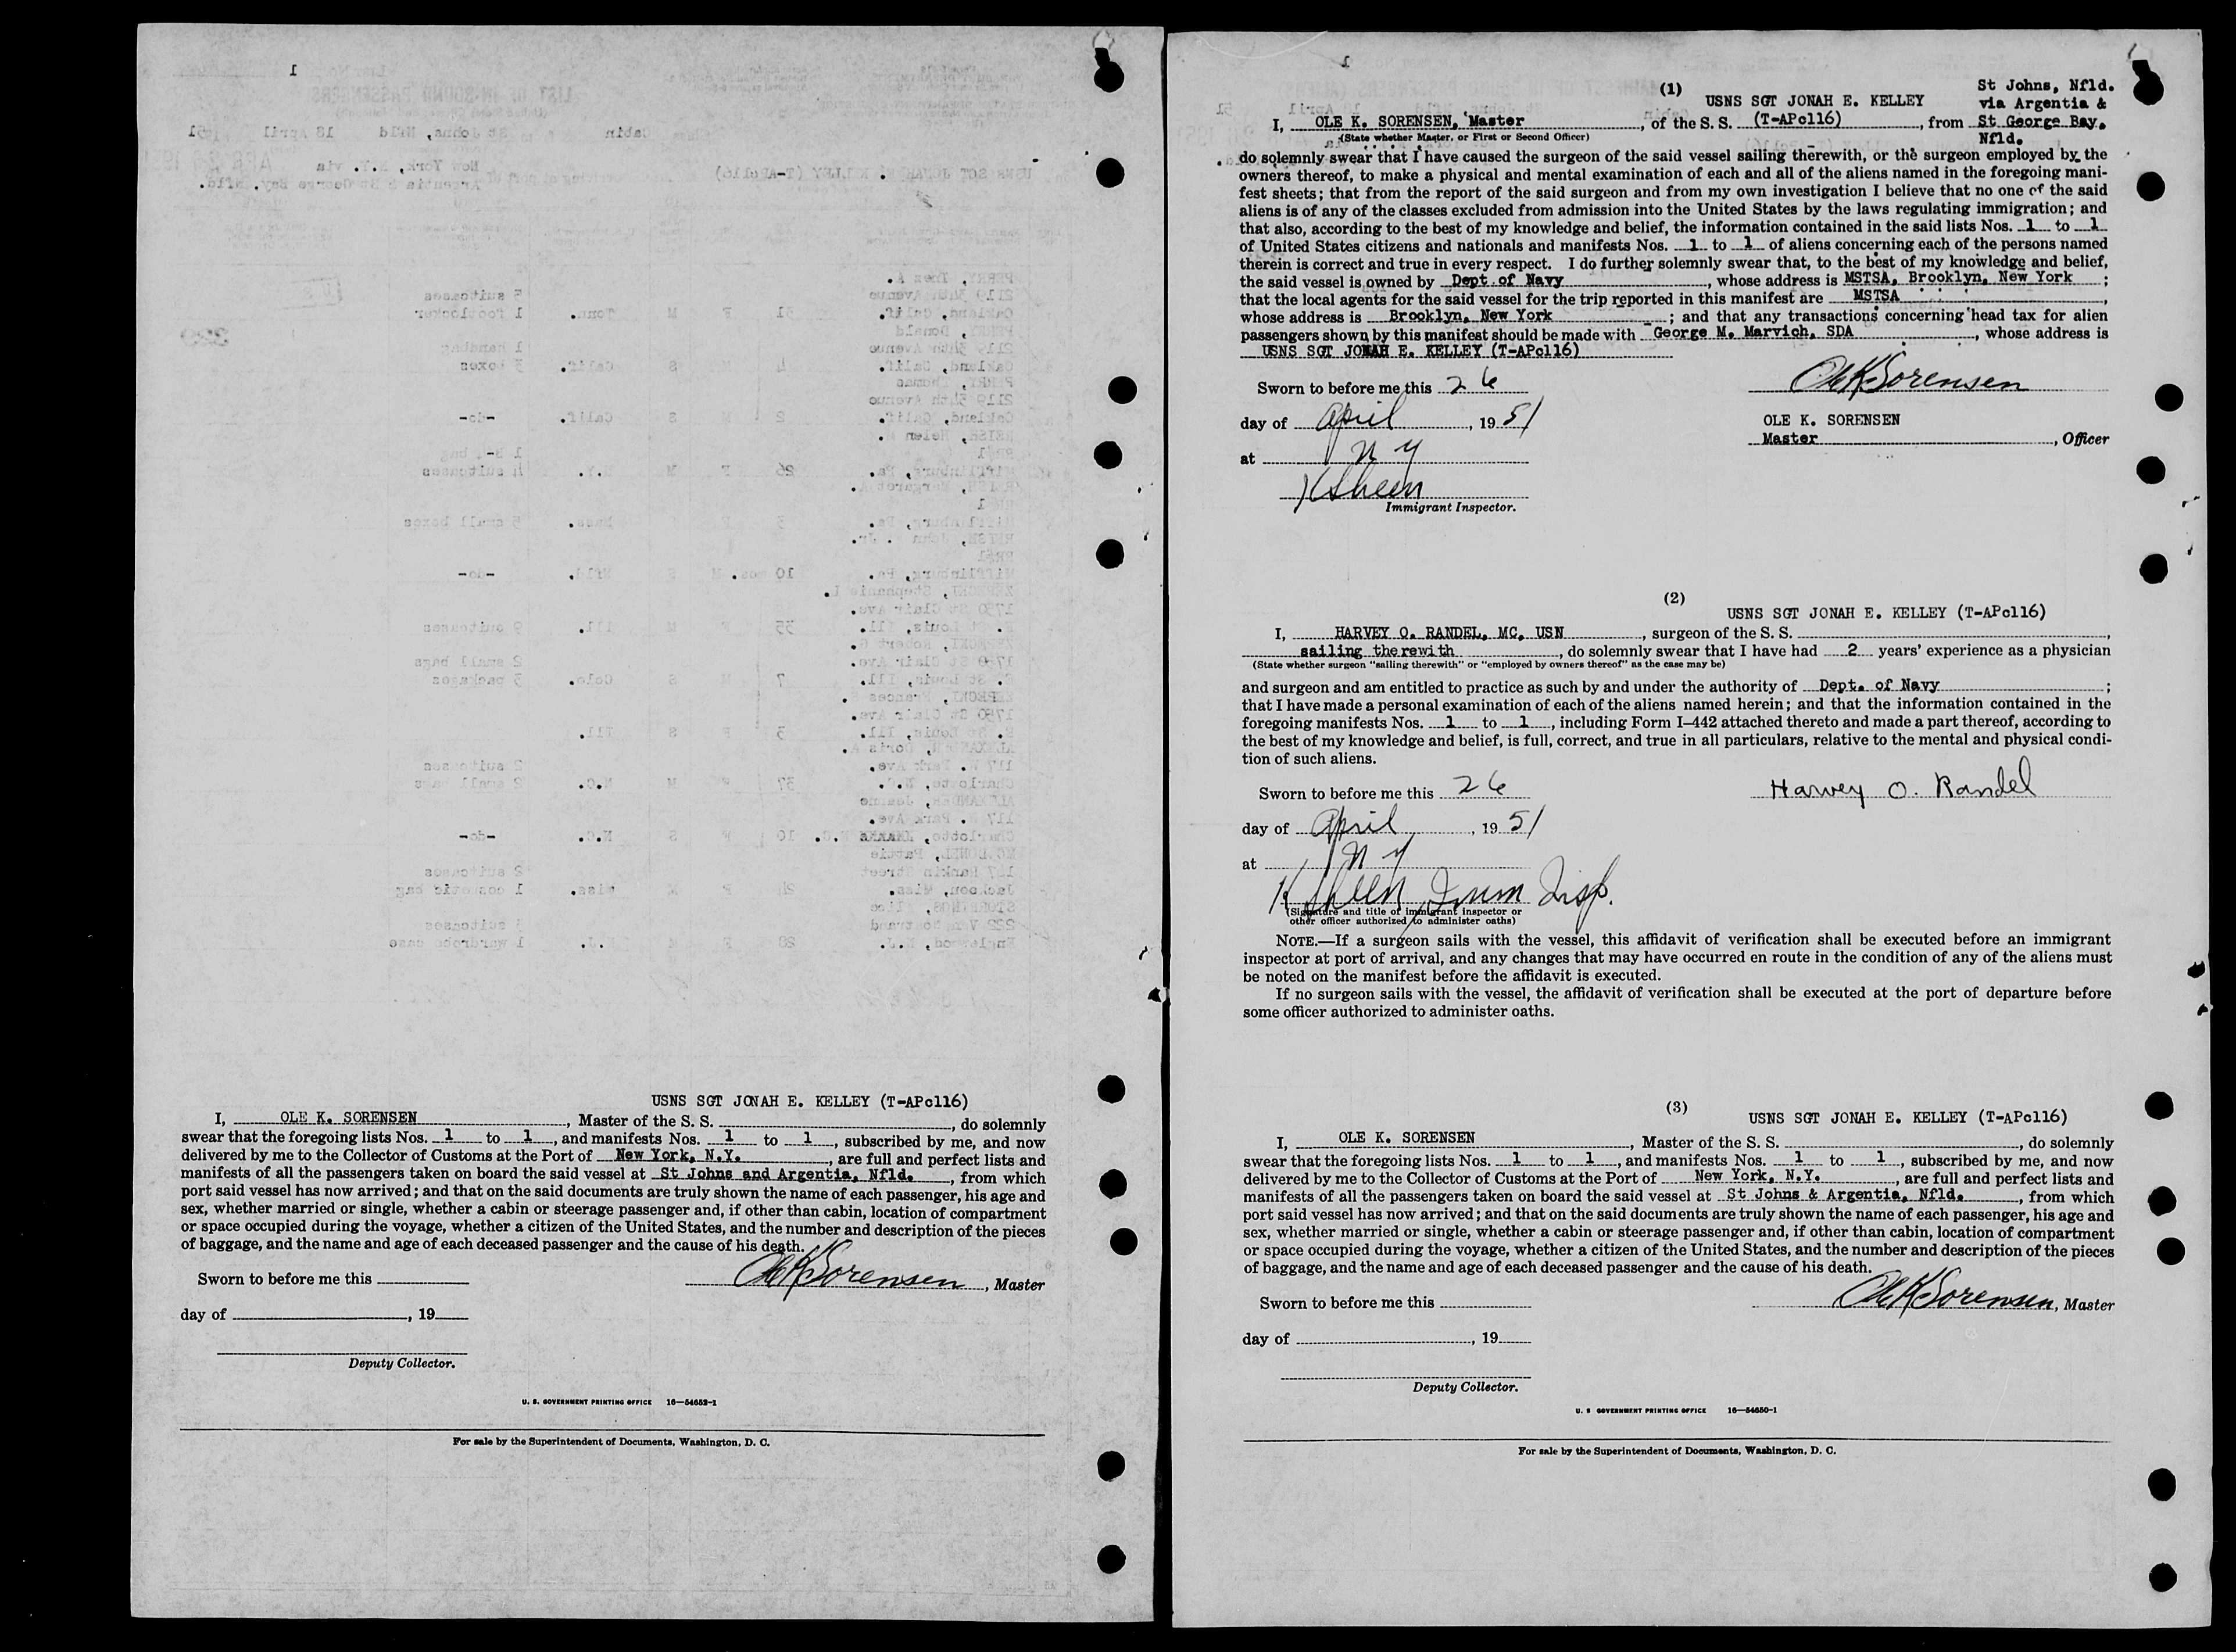 1
USNS SGT JONAH E. KELLEY (T-APc116)
I, OLE K. SORENSEN, Master of the S. S. , do solemnly
swear that the foregoing lists Nos. 1 to 1, and manifests Nos. 1 to 1, subscribed by me, and now
delivered by me to the Collector of Customs at the Port of New York, N.Y., are full and perfect lists and
manifests of all the passengers taken on board the said vessel at St Johns and Argentia, Nfld., from which
port said vessel has now arrived; and that on the said documents are truly shown the name of each passenger, his age and
sex, whether married or single, whether a cabin or steerage passenger and, if other than cabin, location of compartment
or space occupied during the voyage, whether a citizen of the United States, and the number and description of the pieces
of baggage, and the name and age of each deceased passenger and the cause of his death.
Sworn to before me this
Ole K Sorensen, Master
day of , 19
Deputy Collector.
U. S. GOVERNMENT PRINTING OFFICE 16—54652-1
For sale by the Superintendent of Documents, Washington, D. C.
(1)
USNS SGT JONAH E. KELLEY
St Johns, Nfld.
via Argentia &
I, OLE K. SORENSEN, Master, of the S. S. (T-APc116), from St George Bay,
Nfld.
(State whether Master, or First or Second Officer)
do solemnly swear that I have caused the surgeon of the said vessel sailing therewith, or the surgeon employed by the
owners thereof, to make a physical and mental examination of each and all of the aliens named in the foregoing mani-
fest sheets; that from the report of the said surgeon and from my own investigation I believe that no one of the said
aliens is of any of the classes excluded from admission into the United States by the laws regulating immigration; and
that also, according to the best of my knowledge and belief, the information contained in the said lists Nos. 1 to 1
of United States citizens and nationals and manifests Nos. 1 to 1 of aliens concerning each of the persons named
therein is correct and true in every respect. I do further solemnly swear that, to the best of my knowledge and belief,
the said vessel is owned by Dept of Navy, whose address is MSTSA, Brooklyn, New York;
that the local agents for the said vessel for the trip reported in this manifest are MSTSA,
whose address is Brooklyn, New York; and that any transactions concerning head tax for alien
passengers shown by this manifest should be made with George M. Marvich, SDA, whose address is
USNS SGT JONAH E. KELLEY (T-APc116)
Sworn to before me this 26
Ole K Sorensen
day of April, 1951
OLE K. SORENSEN
Master, Officer
at N Y
K Sheen
Immigrant Inspector.
(2)
USNS SGT JONAH E. KELLEY (T-APc116)
I, HARVEY O. RANDEL, MC, USN, surgeon of the S. S. ,
sailing therewith, do solemnly swear that I have had 2 years' experience as a physician
(State whether surgeon "sailing therewith" or "employed by owners thereof" as the case may be)
and surgeon and am entitled to practice as such by and under the authority of Dept. of Navy;
that I have made a personal examination of each of the aliens named herein; and that the information contained in the
foregoing manifests Nos. 1 to 1, including Form I-442 attached thereto and made a part thereof, according to
the best of my knowledge and belief, is full, correct, and true in all particulars, relative to the mental and physical condi-
tion of such aliens.
Sworn to before me this 26
Harvey O. Randel
day of April, 1951
at N Y
K Sheen Imm Insp.
(Signature and title of immigrant inspector or
other officer authorized to administer oaths)
NOTE.—If a surgeon sails with the vessel, this affidavit of verification shall be executed before an immigrant
inspector at port of arrival, and any changes that may have occurred en route in the condition of any of the aliens must
be noted on the manifest before the affidavit is executed.
If no surgeon sails with the vessel, the affidavit of verification shall be executed at the port of departure before
some officer authorized to administer oaths.
(3)
USNS SGT JONAH E. KELLEY (T-APc116)
I, OLE K. SORENSEN, Master of the S. S. , do solemnly
swear that the foregoing lists Nos. 1 to 1, and manifests Nos. 1 to 1, subscribed by me, and now
delivered by me to the Collector of Customs at the Port of New York, N.Y., are full and perfect lists and
manifests of all the passengers taken on board the said vessel at St Johns & Argentia, Nfld., from which
port said vessel has now arrived; and that on the said documents are truly shown the name of each passenger, his age and
sex, whether married or single, whether a cabin or steerage passenger and, if other than cabin, location of compartment
or space occupied during the voyage, whether a citizen of the United States, and the number and description of the pieces
of baggage, and the name and age of each deceased passenger and the cause of his death.
Sworn to before me this
Ole K Sorensen, Master
day of , 19
Deputy Collector.
U. S GOVERNMENT PRINTING OFFICE 16—54650-1
For sale by the Superintendent of Documents, Washington, D. C.